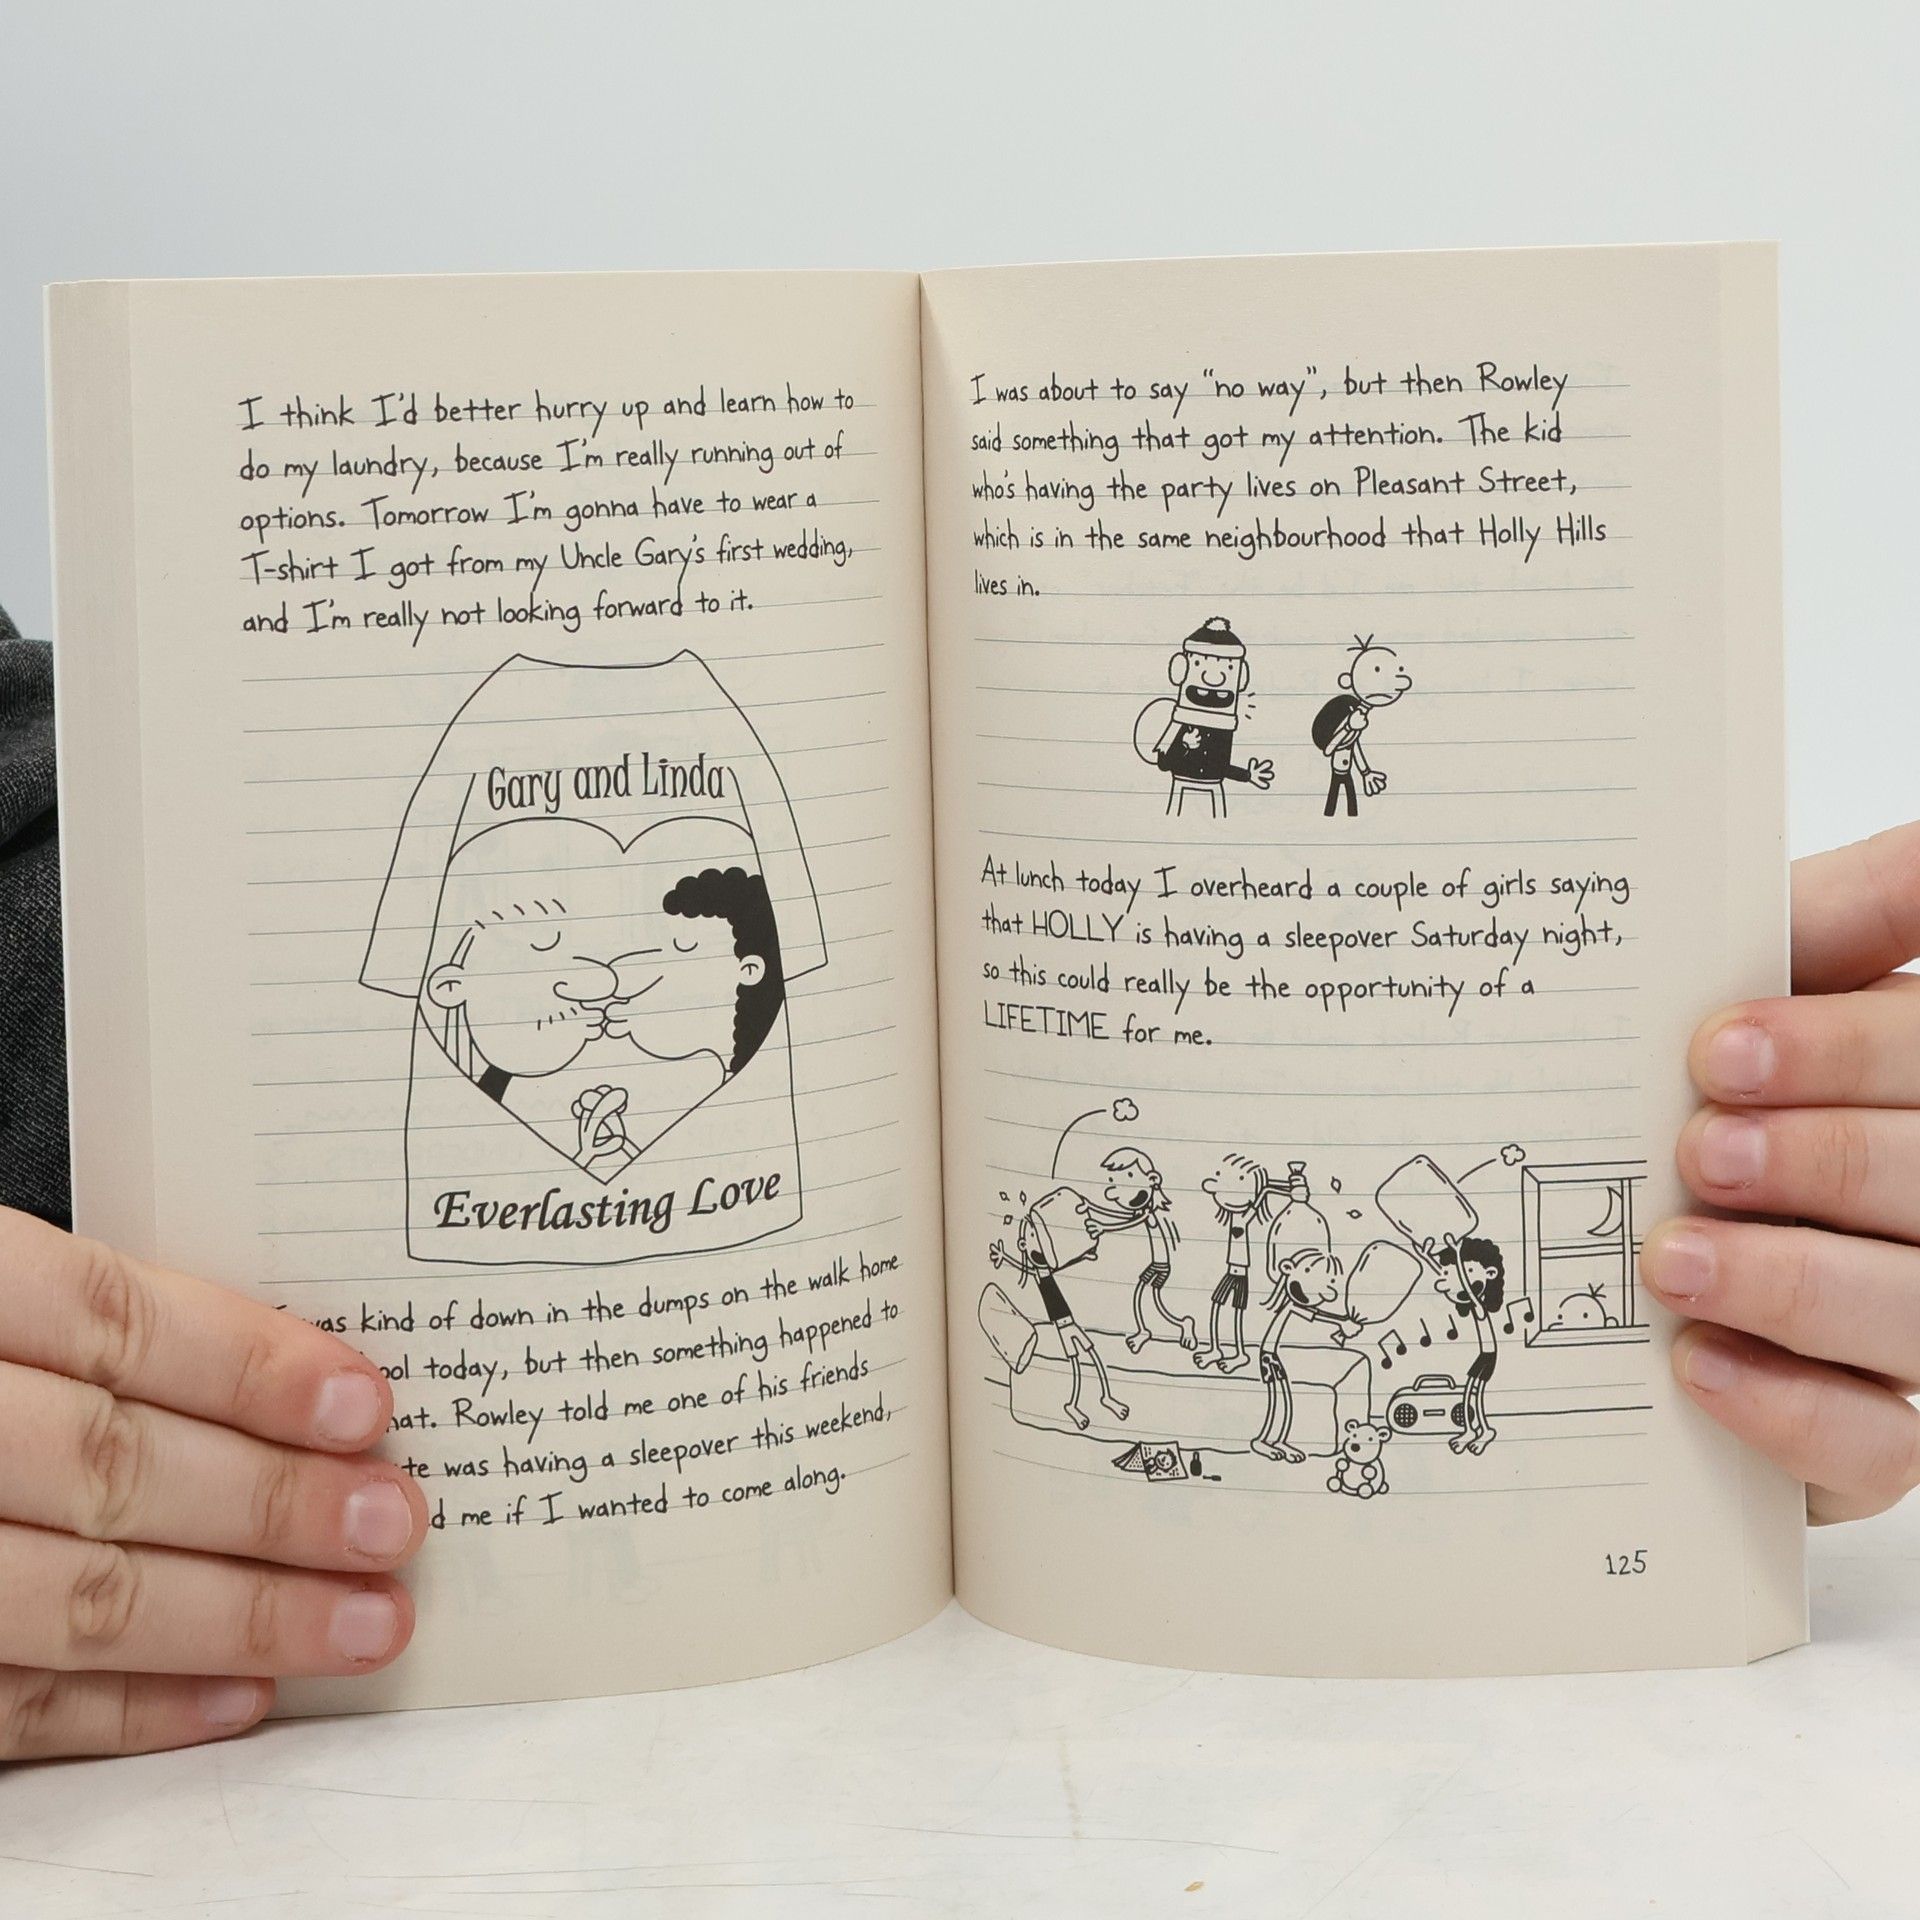 I think I'd better hurry up and learn how to
do my laundry, because I'm really running out of
options. Tomorrow I'm gonna have to wear a
T-shirt I got from my Uncle Gary's first wedding,
and I'm really not looking forward to it.
Gary and Linda
Everlasting Love
was kind of down in the dumps on the walk home
today, but then something happened to
Rowley told me one of his friends
was having a sleepover this weekend,
me if I wanted to come along.
I was about to say "no way", but then Rowley
said something that got my attention. The kid
who's having the party lives on Pleasant Street,
which is in the same neighbourhood that Holly Hills
lives in.
At lunch today I overheard a couple of girls saying
that HOLLY is having a sleepover Saturday night,
so this could really be the opportunity of a
LIFETIME for me.
125